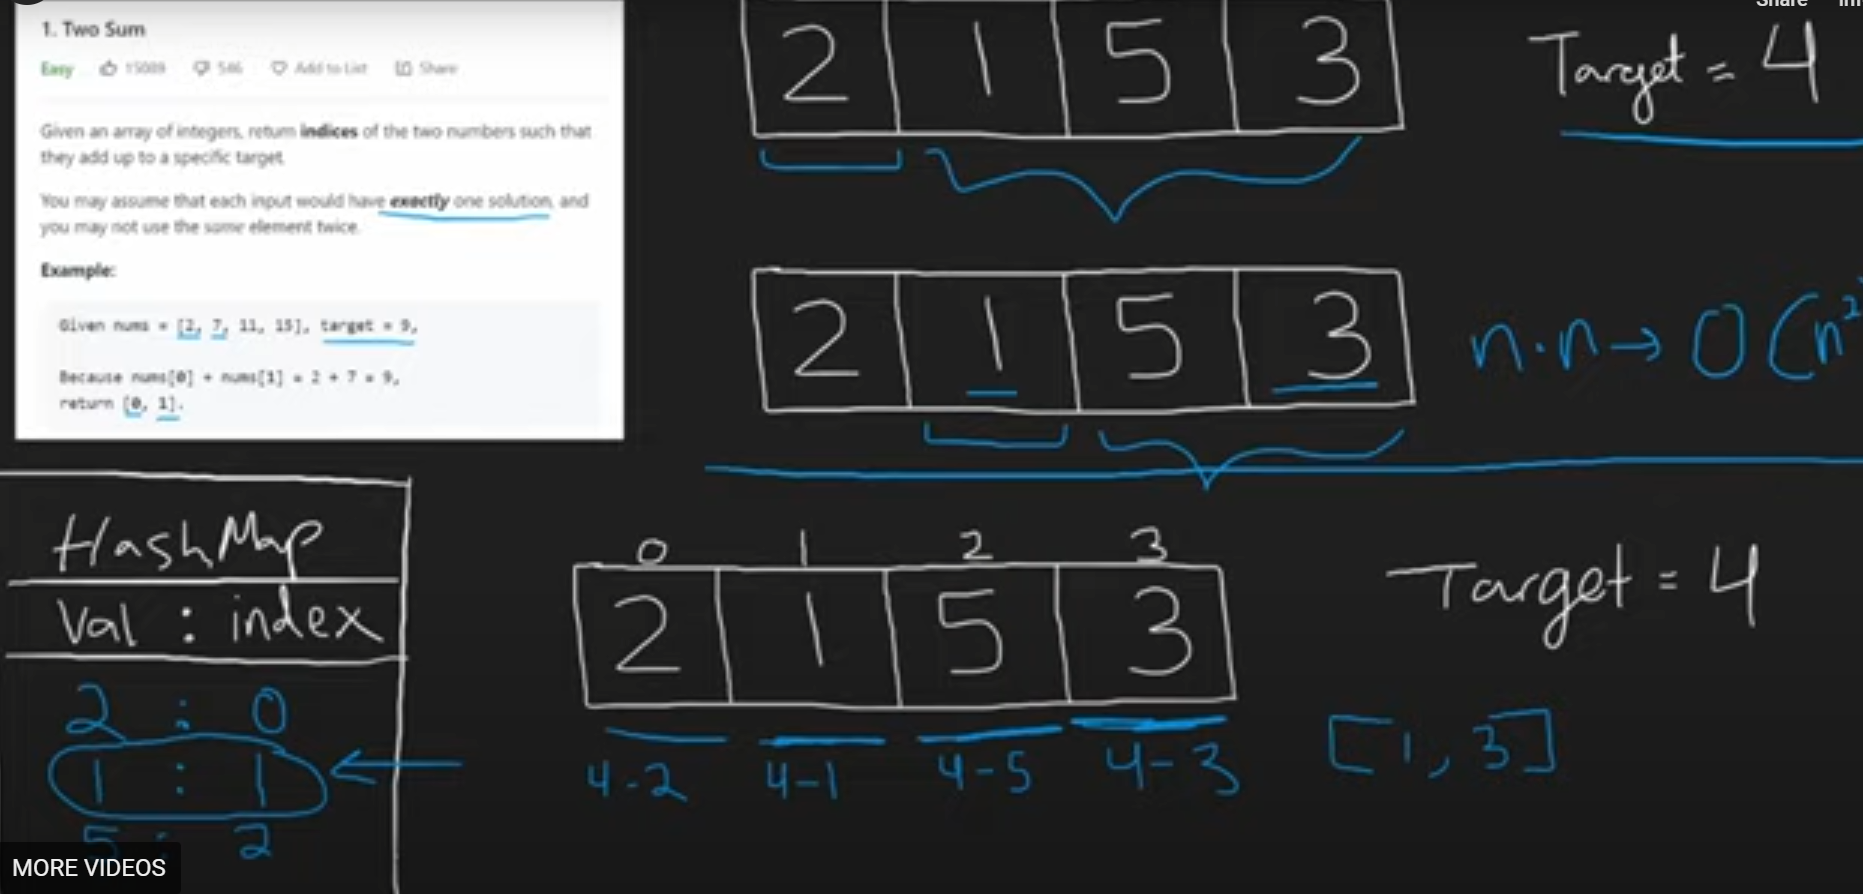 1. Two Sum
Easy 15089 546 Add to List Share
Given an array of integers, return indices of the two numbers such that
they add up to a specific target.
You may assume that each input would have exactly one solution, and
you may not use the same element twice.
Example:
Given nums = [2, 7, 11, 15], target = 9,
Because nums[0] + nums[1] = 2 + 7 = 9,
return [0, 1].
Share
2 1 5 3
Target = 4
2 1 5 3
n·n→ O(n²
HashMap
Val : index
2 : 0
1 : 1
5 : 2
0 1 2 3
2 1 5 3
4-2 4-1 4-5 4-3
Target = 4
[1, 3]
MORE VIDEOS